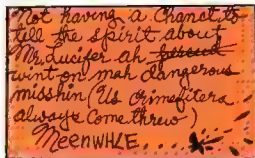 Not having a Chanct to
tell the spirit about
Mr. Lucifer ah
wint on mah dangerous
misshin (Us crimefiters
always come threw)
MeenWHLE....